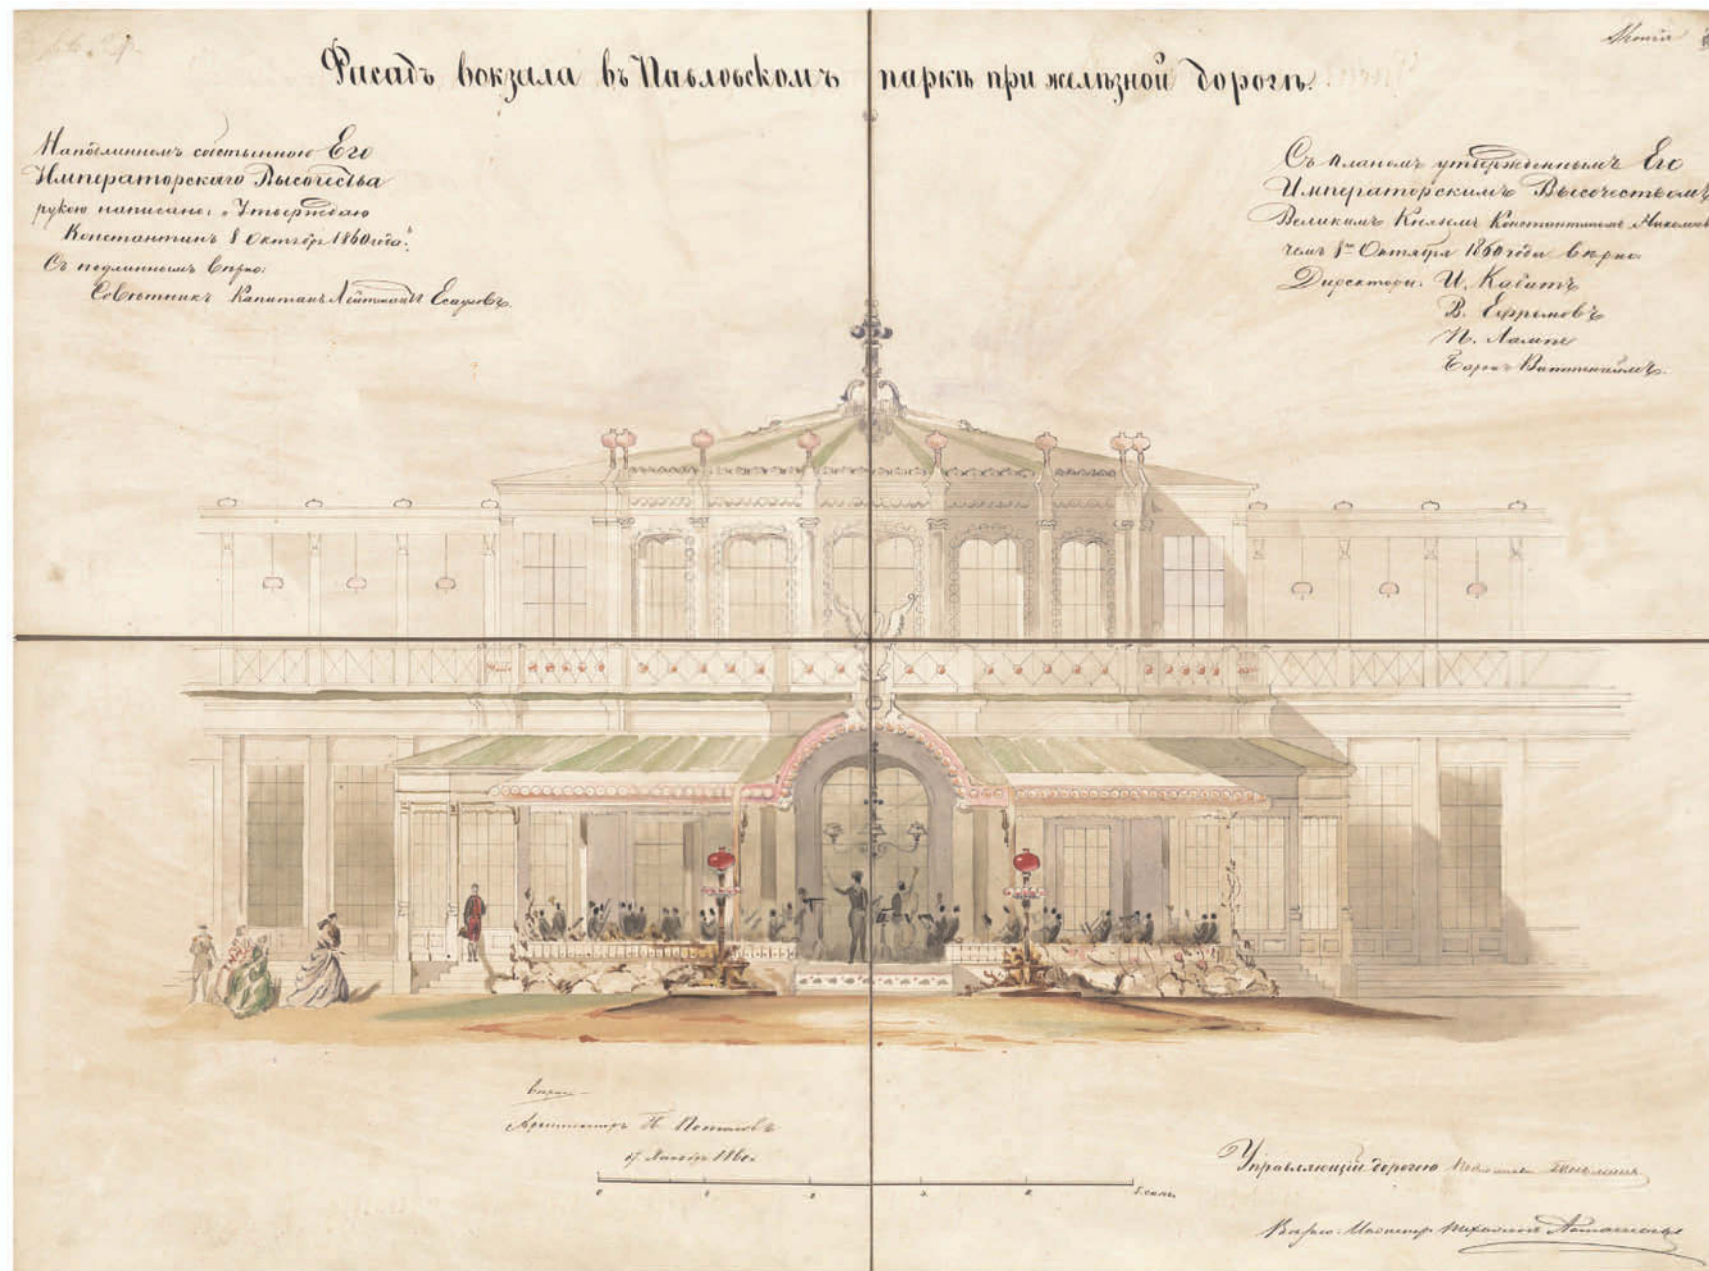 Копія
Фасадъ вокзала въ Павловскомъ паркѣ при желѣзной дорогѣ.
На подлинномъ собственною Его
Императорскаго Высочества
рукою написано: „Утверждаю
Константинъ 8 Октябр 1860 года“.
Съ подлиннымъ вѣрно:
Совѣтникъ Капитанъ Лейтенантъ
Съ планомъ утвержденнымъ Его
Императорскимъ Высочествомъ
Великимъ Княземъ Константиномъ Николаеви
чемъ 8го Октября 1860 года вѣрно
Директоры: И. Кабатъ
В. Ефремовъ
П. Лампе
Баронъ
вѣрно
Архитекторъ Н.
1860
0
5 саж.
Управляющій дорогою
Вѣрно: